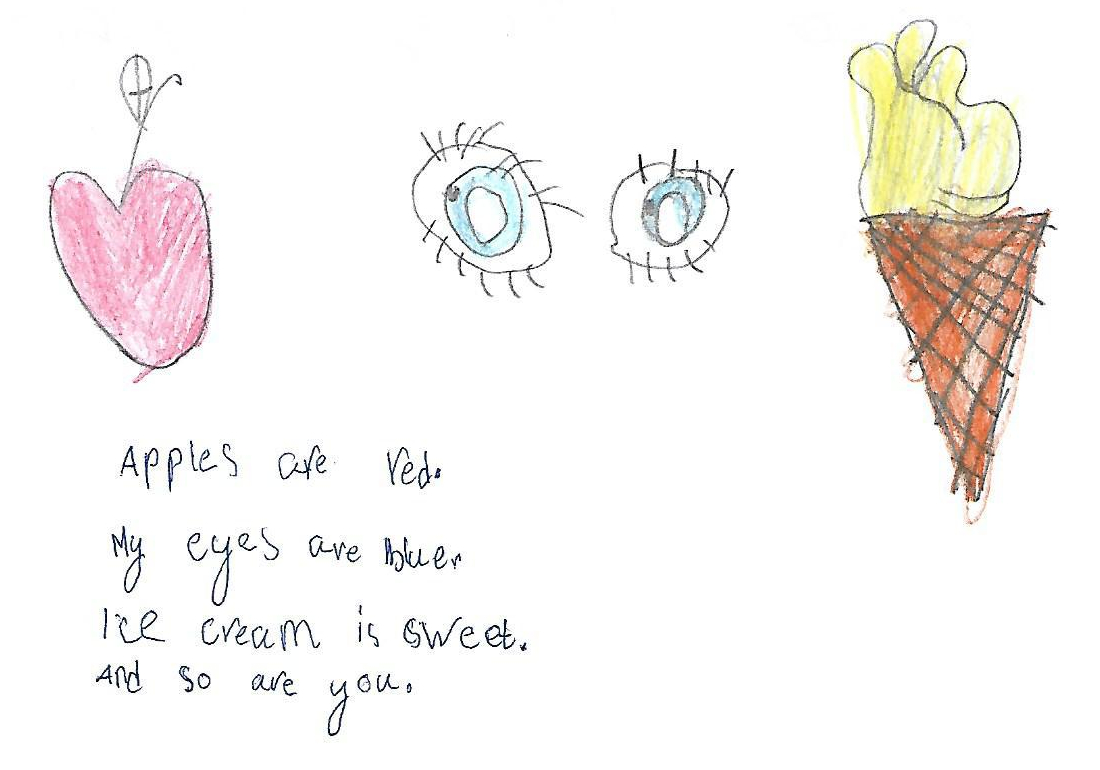 Apples are red.
My eyes are bluer
Ice cream is sweet.
And so are you.